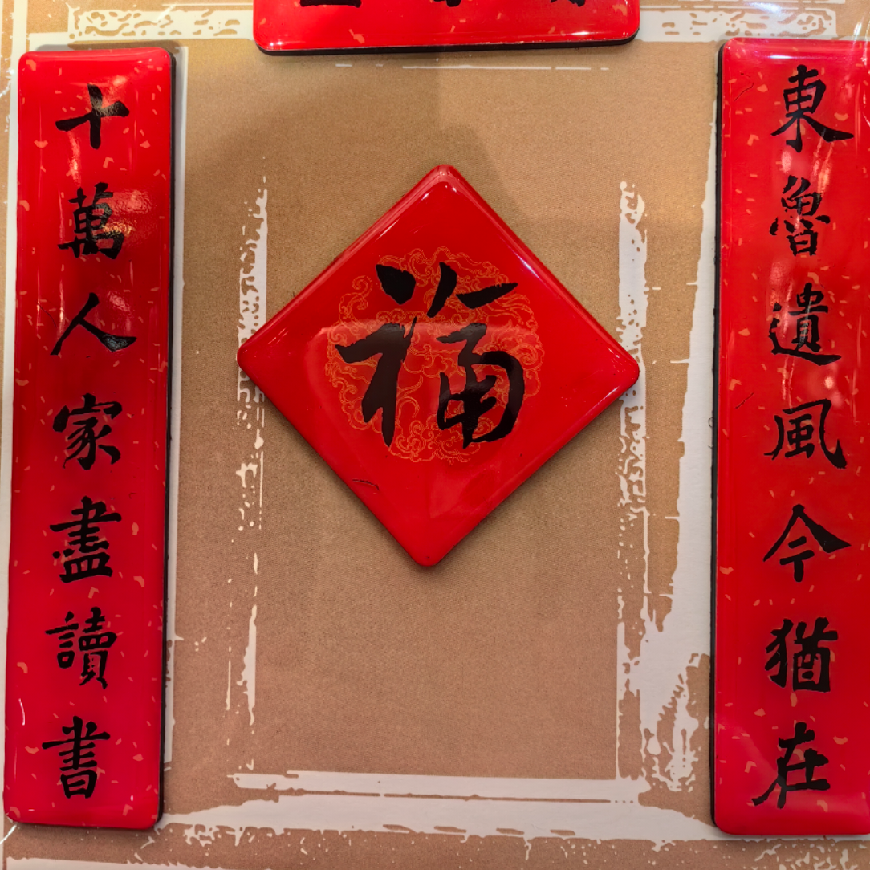 東魯遺風今猶在
福
十萬人家盡讀書